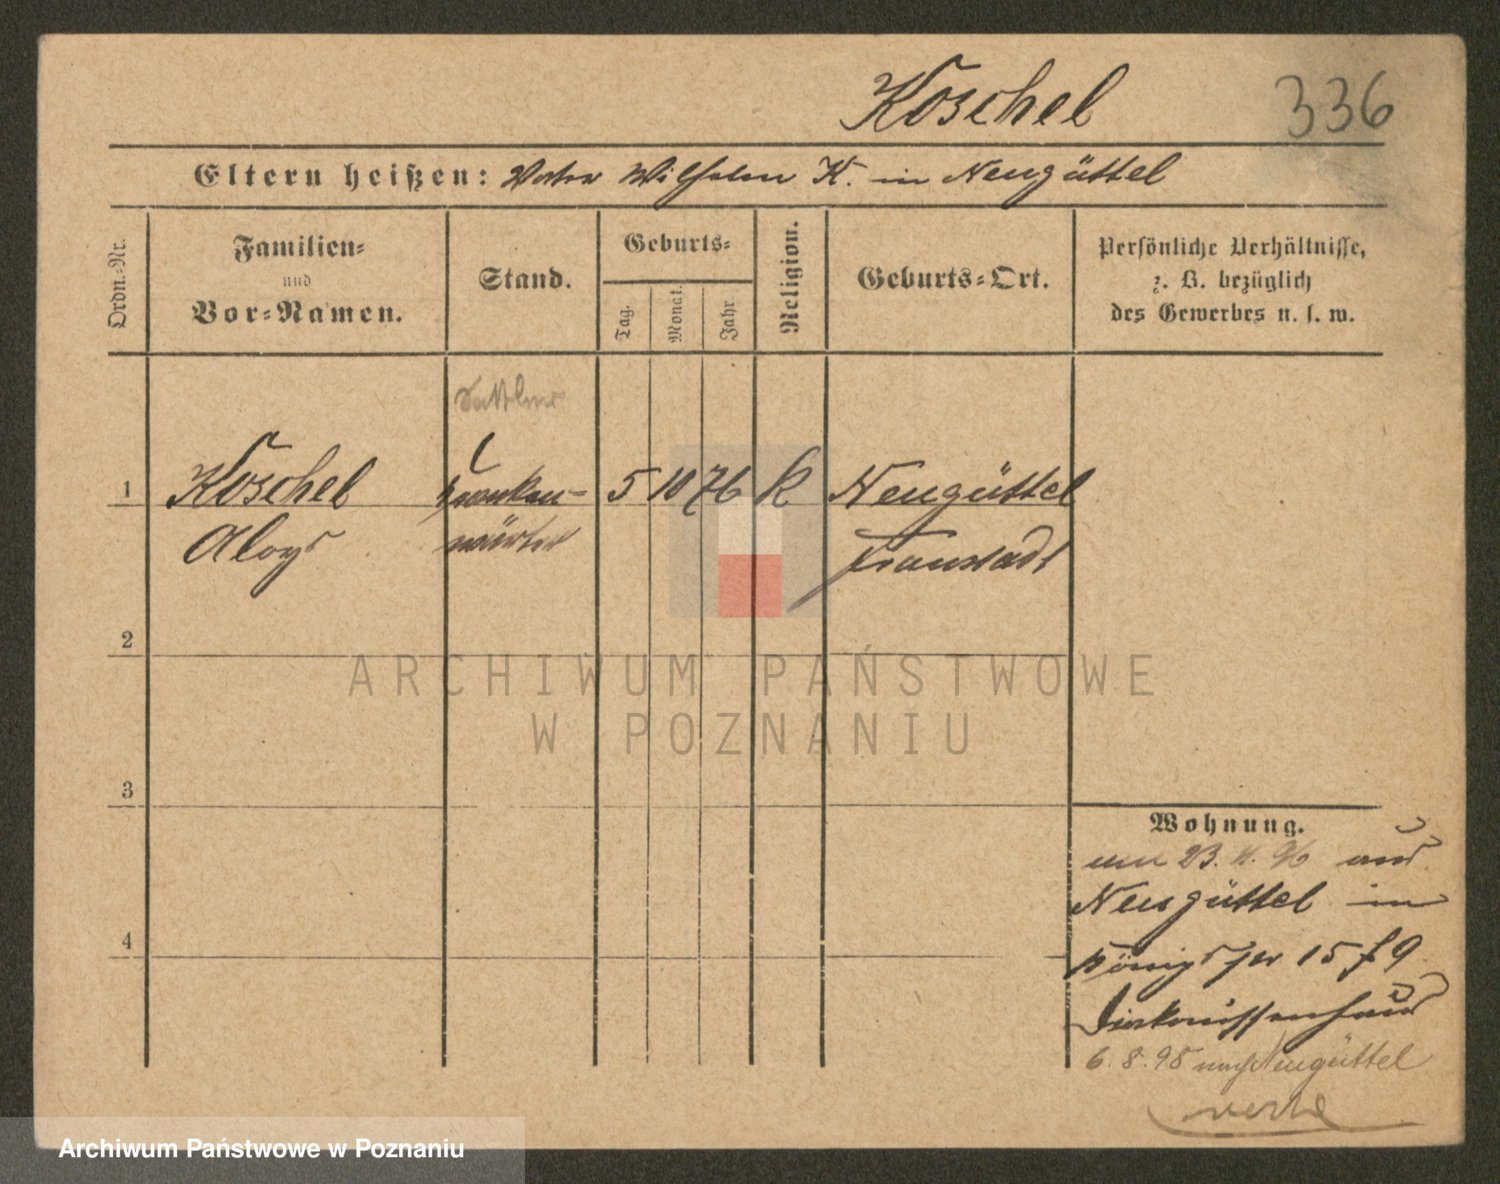 Koschel 336
Eltern heißen: Vater Wilhelm K. in Neugüttel
Ordn.-Nr.
Familien-
und
Vor-Namen.
Stand.
Geburts-
Tag.
Monat.
Jahr.
Religion.
Geburts-Ort.
Persönliche Verhältnisse,
z. B. bezüglich
des Gewerbes u. s. w.
1 Koschel Kranken- 5 10 76 k Neugüttel
Aloys wärter Fraustadt
2
3
4
Wohnung.
23. 96 aus
Neugüttel in
Königspr 15 f 9
Diakonissenhaus
6.8.98 nach Neugüttel
verte
ARCHIWUM PAŃSTWOWE
W POZNANIU
Archiwum Państwowe w Poznaniu